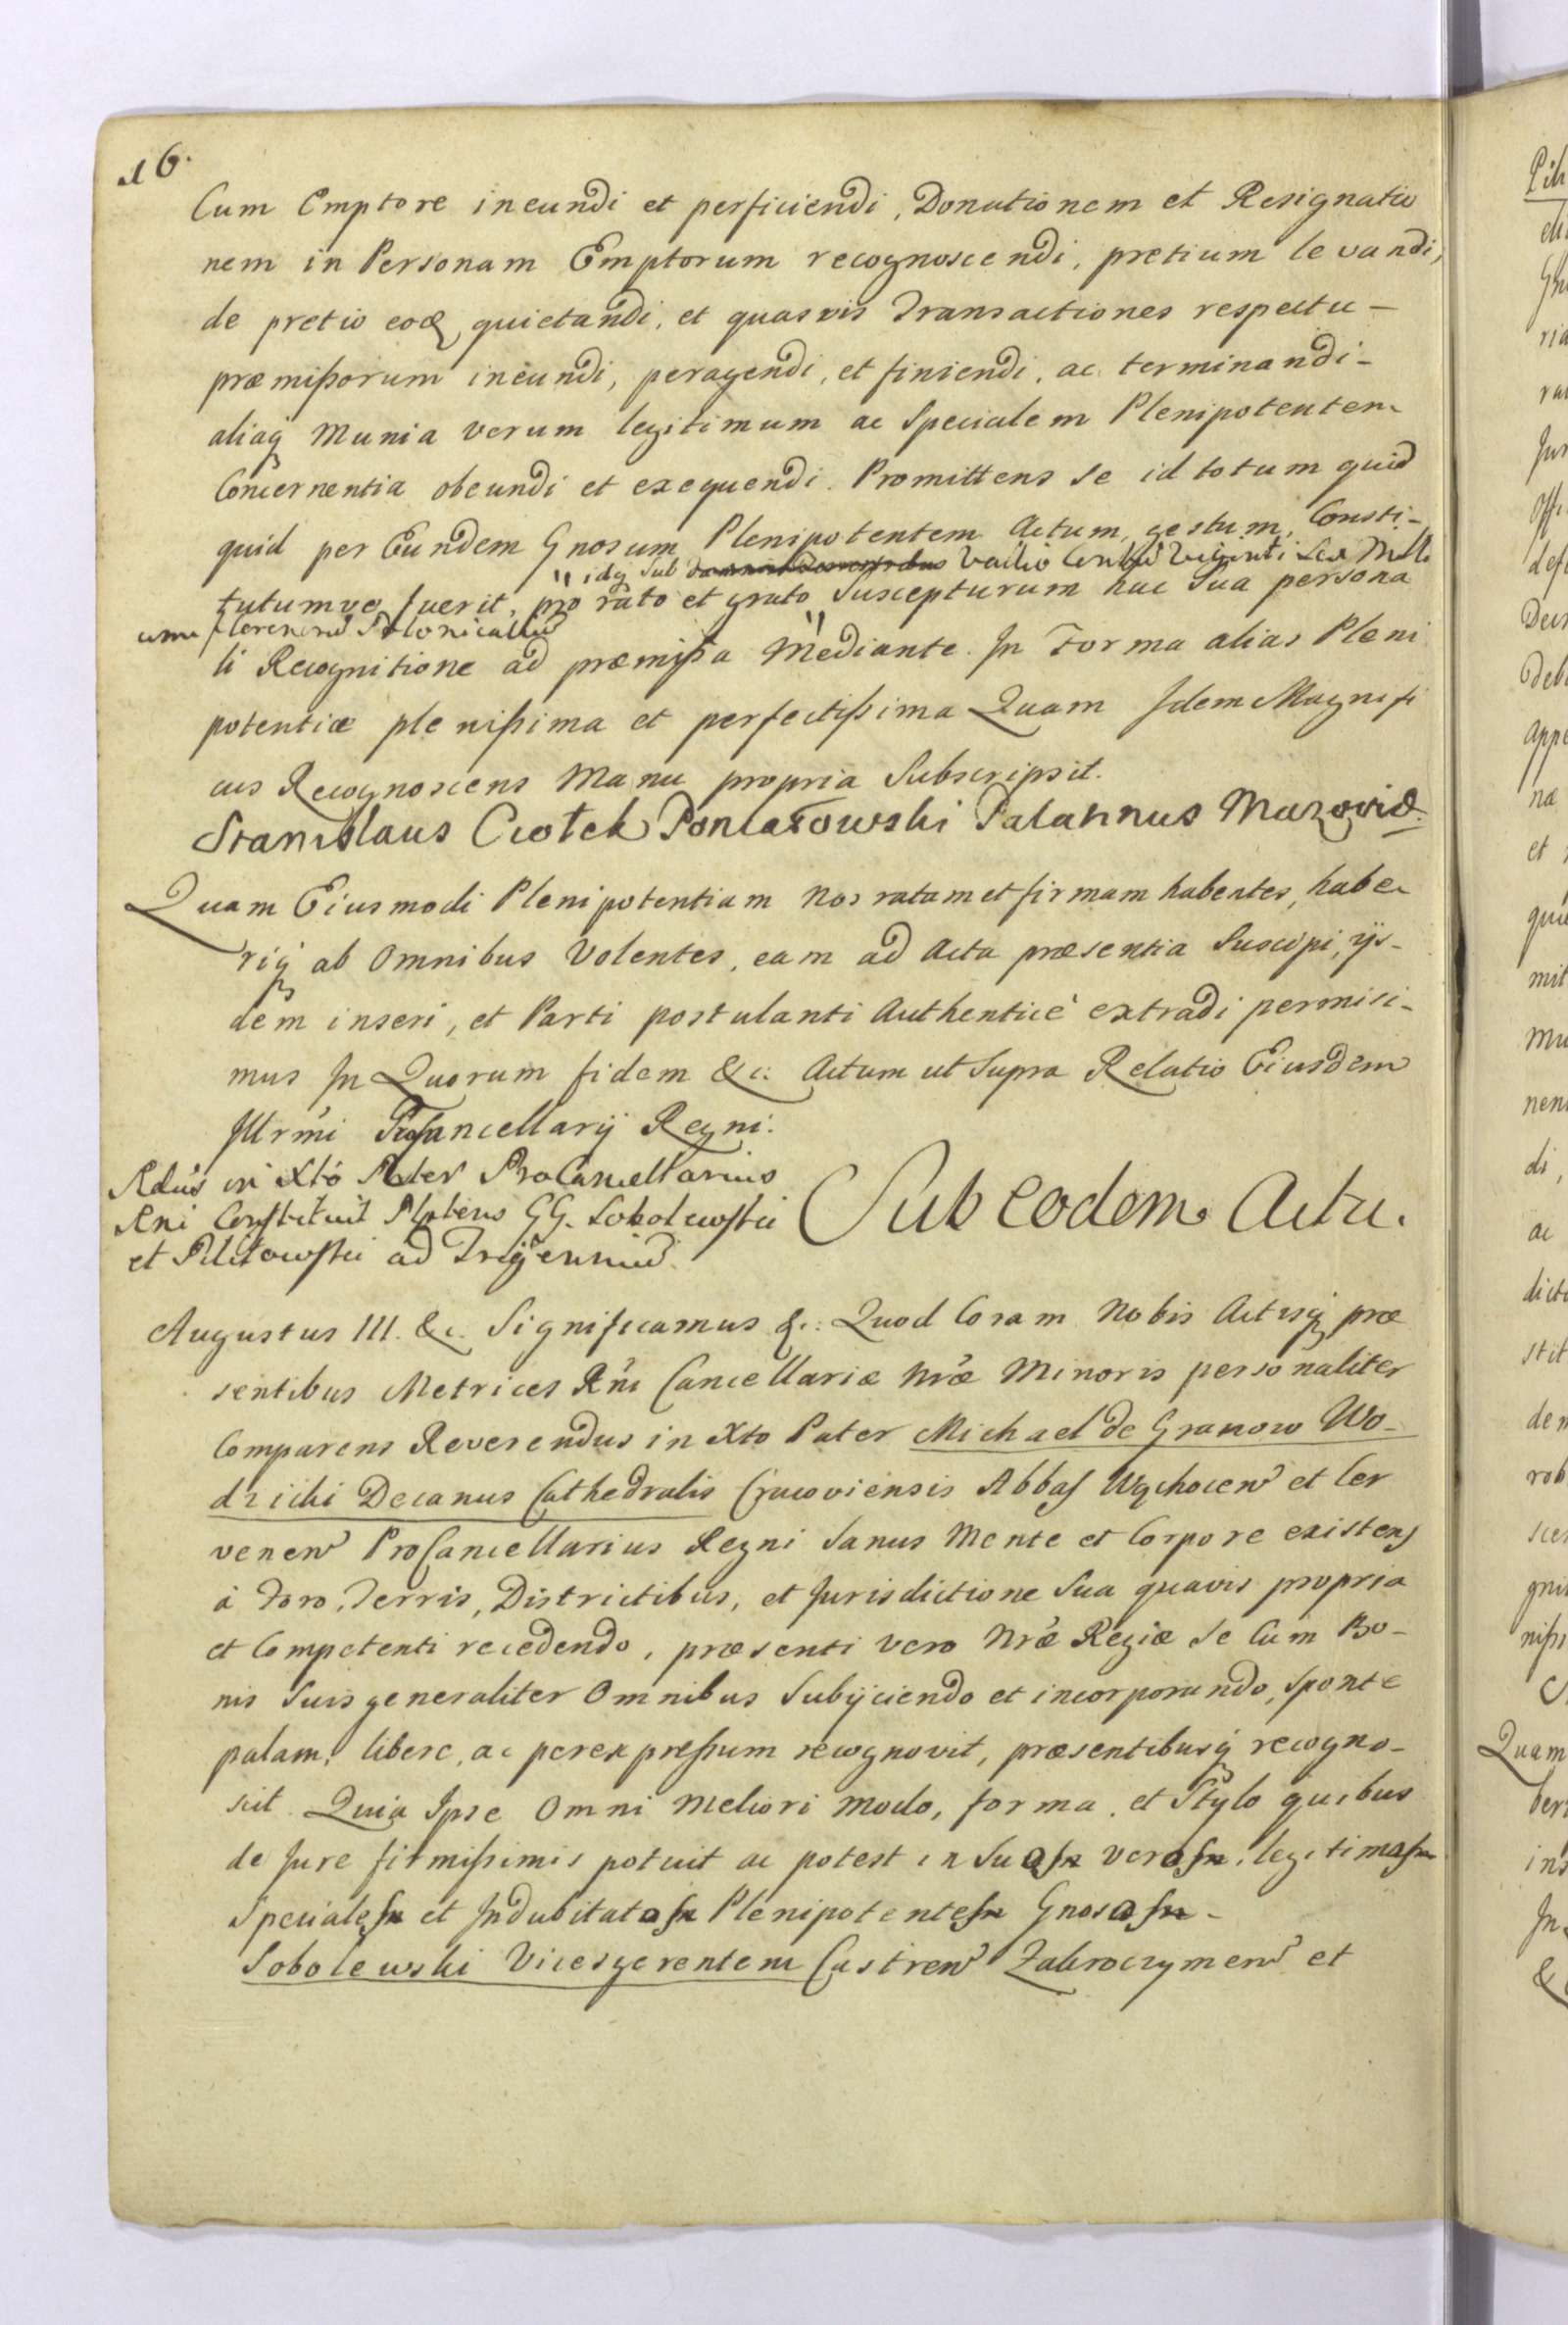 16.
Cum Emptore ineundi et perficiendi, Donationem et Resignatio
nem in Personam Emptorum recognoscendi, pretium levandi,
de pretio eoq quietandi, et quasvis Transactiones respectu –
præmißorum ineundi, peragendi, et finiendi, ac terminandi –
aliaq Munia verum legitimum ac Specialem Plenipotentem
Concernentia obeundi et exequendi. Promittens se id totum quid
quid per Eundem Gnosum Plenipotentem Actum, gestum, Consti-
" idq sub Vadio Centū Viginti Sex Milli
tutumve fuerit, pro rato et grato Suscepturum hac Sua persona
umu florenorū Polonicaliū
li Recognitione ad præmißa " Mediante. In Forma alias Pleni
potentiæ plenißima et perfectißima Quam Idem Magnifi
cus Recognoscens Manu propria Subscripsit.
Stanislaus Ciołek Poniatowski Palatinus Mazoviæ.
Quam Eiusmodi Plenipotentiam Nos ratam et firmam habentes, habe
riq ab Omnibus Volentes, eam ad Acta præsentia Suscipi, ijs-
dem inseri, et Parti postulanti Authenticè extradi permisi-
mus In Quorum fidem &c: Actum ut Supra Relatio Eiusdem
Illrmi ProCancellarij Regni.
Rdus in Xto Pater ProCancellarius
Rni Constituit Plptens GG. Sobolewski
et Pilitowski ad Trigennium
Sub eodem Actu.
Augustus III. &c. Significamus &c: Quod Coram Nobis Actisq præ
sentibus Metrices Rni Cancellariæ Nræ Minoris personaliter
Comparens Reverendus in Xto Pater Michael de Granow Wo-
dzicki Decanus Cathedralis Cracoviensis Abbas Wąchocen et Cer
venen ProCancellarius Regni Sanus Mente et Corpore existens
à Foro, Terris, Districtibus, et Jurisdictione Sua quavis propria
et Competenti recedendo, præsenti vero Nræ Regiæ Se Cum Bo-
nis Suis generaliter Omnibus Subijciendo et incorporando, Sponte
palam, libere, ac per expreßum recognovit, præsentibusq recogno-
scit Quia Ipse Omni Meliori modo, forma, et Stylo quibus
de Jure firmißimis potuit ac potest in Suos veros, legitimos
Speciales et Indubitatos Plenipotentes Gnosos –
Sobolewski Vicesgerentem Castren Zakroczymen et